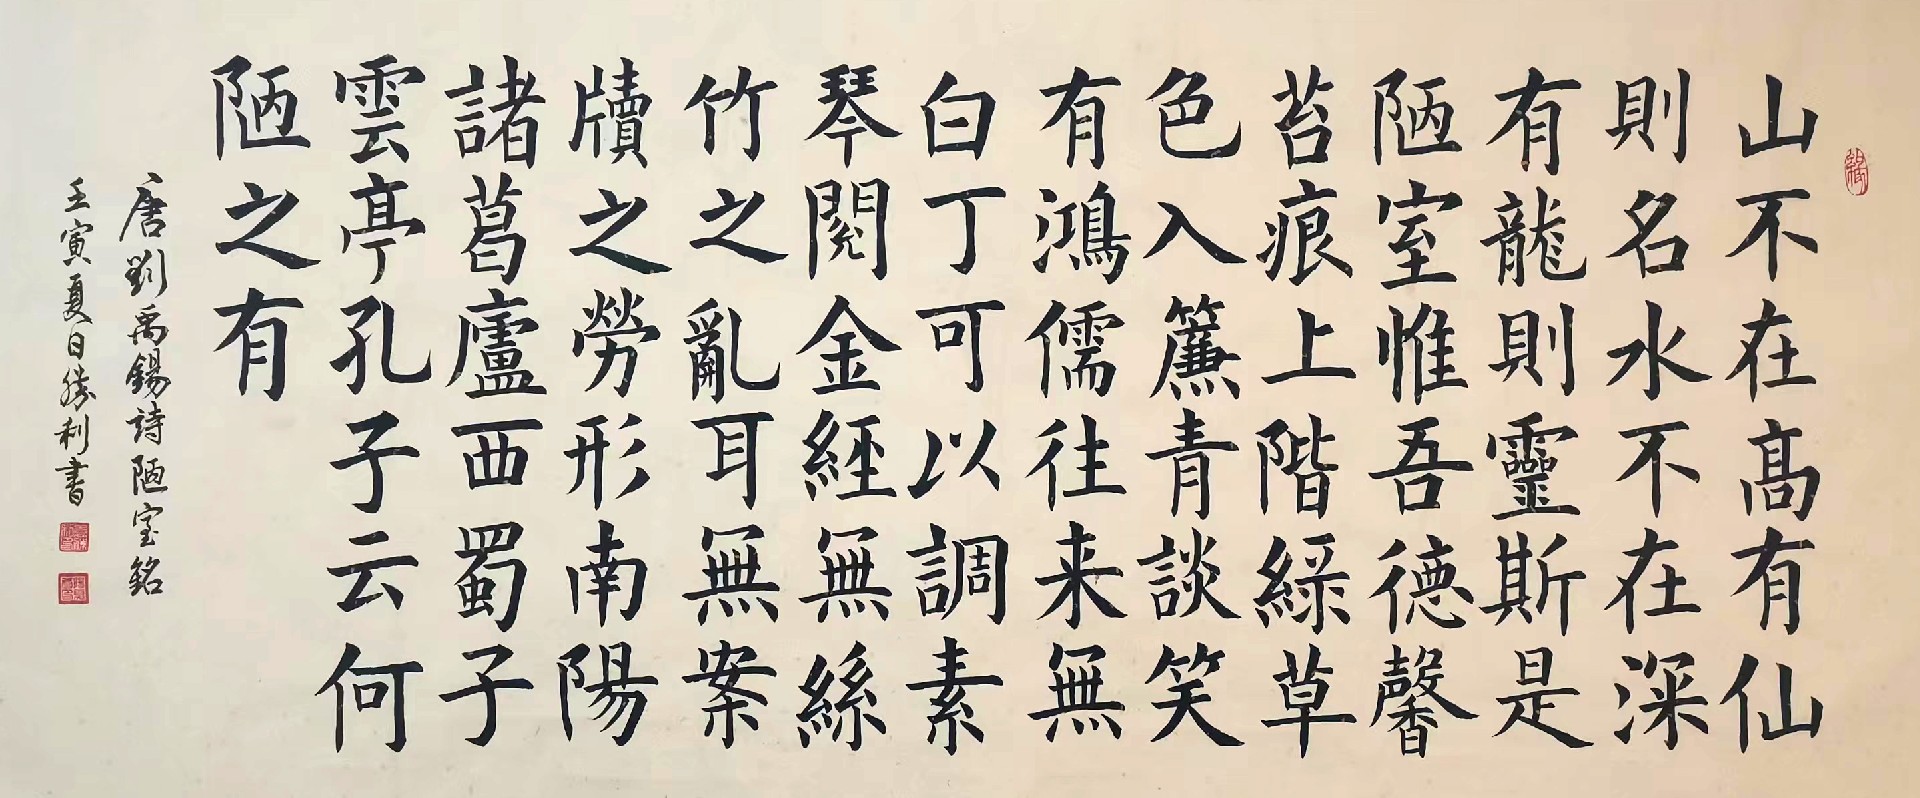 山不在高有仙
則名水不在深
有龍則靈斯是
陋室惟吾德馨
苔痕上階綠草
色入簾青談笑
有鴻儒往来無
白丁可以調素
琴閱金經無絲
竹之亂耳無案
牘之勞形南陽
諸葛廬西蜀子
雲亭孔子云何
陋之有
唐劉禹錫詩陋室銘
壬寅夏日勝利書